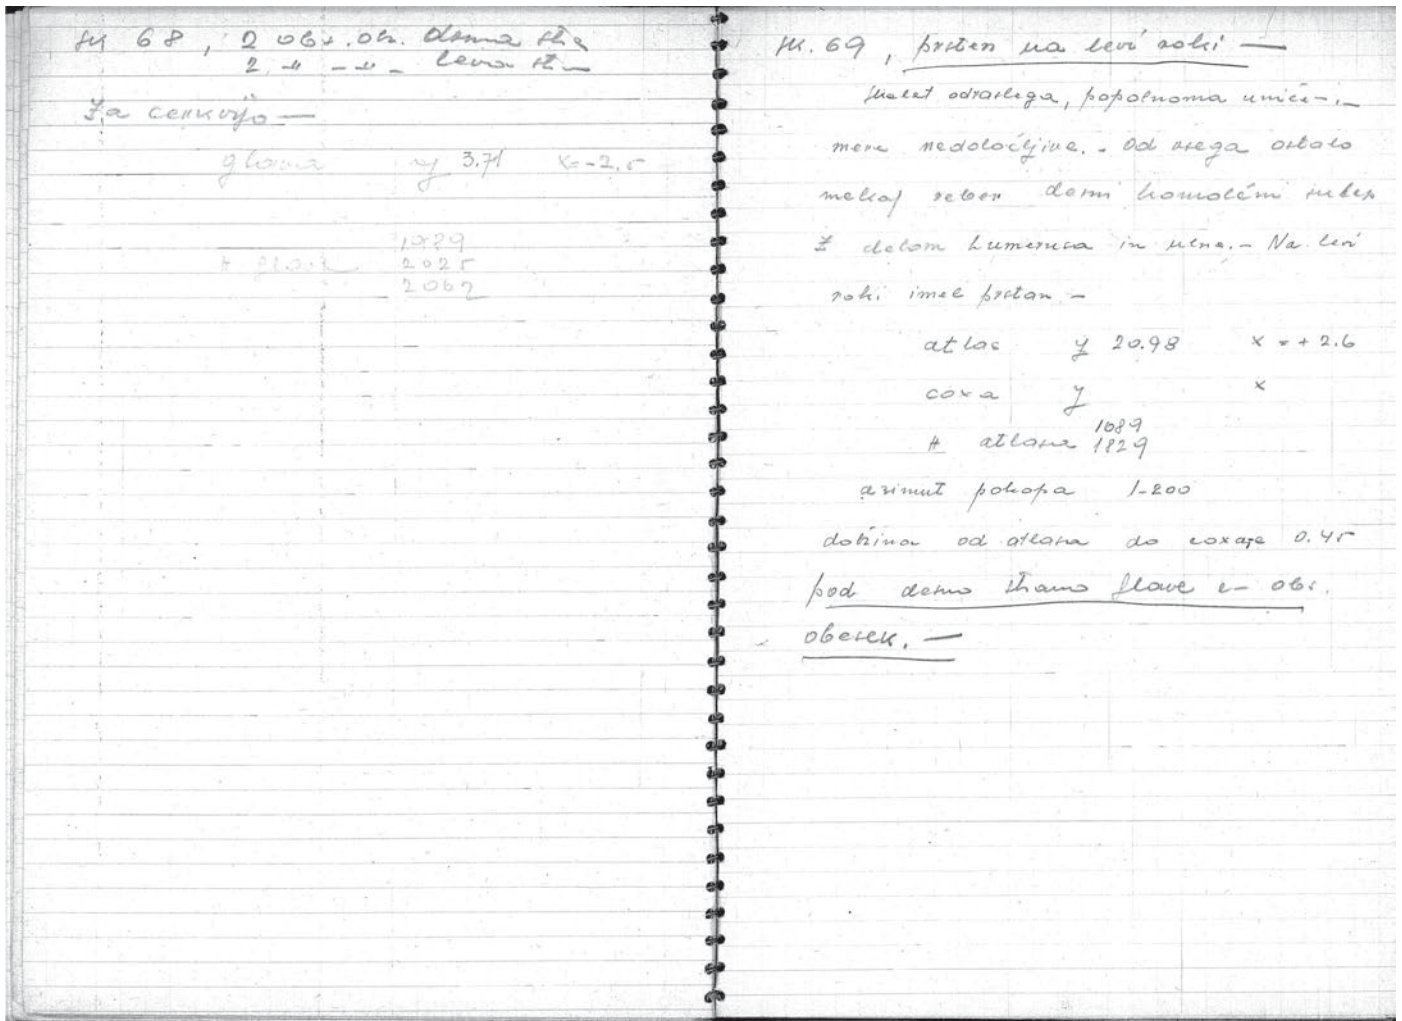 sk 68, 2 obs. ob. desna str
2 -"- -"- leva str
Za cerkvijo —
glava y 3.71 x = -2.5
1929
H glave 2025
2062
sk. 69, prsten na levi roki —
skelet odraslega, popolnoma uniče-.-
mere nedoločljive. - Od vsega ostalo
nekaj reber desni komolčni sklep
z delom humerusa in ulne. - Na levi
roki imel prstan. -
atlas y 20.98 x = + 2.6
coxa y x
1689
H atlasa 1829
azimut pokopa 1-200
dolžina od atlasa do coxae 0.45
pod desno stranjo glave e- obs.
obesek. —